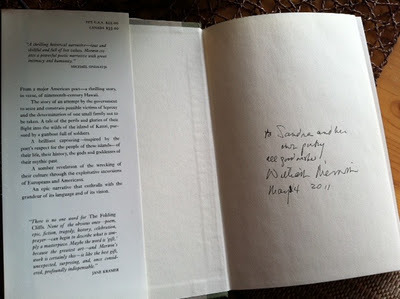 "A thrilling historical narrative—
MICHAEL ONDAATJE
From a major American poet—a thrilling story,
in verse, of nineteenth-century Hawaii.
The story of an attempt by the government
to seize and constrain possible victims of leprosy
and the determination of one small family not to
be taken. A tale of the perils and glories of their
flight into the wilds of the island of Kauai, pur-
sued by a gunboat full of soldiers.
A brilliant capturing—inspired by the
poet's respect for the people of these islands—of
their life, their history, the gods and goddesses of
their mythic past.
A somber revelation of the wrecking of
their culture through the exploitative incursions
of Europeans and Americans.
An epic narrative that enthralls with the
grandeur of its language and of its vision.
"There is no one word for The Folding
Cliffs. None of the obvious ones—poem,
epic, fiction, tragedy, history, celebration,
prayer—can begin to describe what is sim-
ply a masterpiece. Maybe the word is 'gift,'
because the greatest art—and Merwin's
work is certainly this—is like the best gift,
unexpected, surprising, and, once consid-
ered, profoundly indispensable."
JANE KRAMER
to Sandra and her
own poetry
all good wishes!
William Merwin
May 4 2011